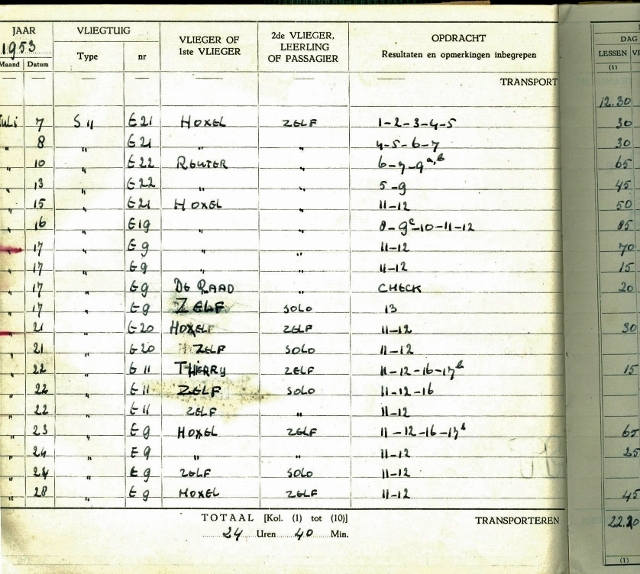 JAAR VLIEGTUIG VLIEGER OF 1ste VLIEGER 2de VLIEGER, LEERLING OF PASSAGIER OPDRACHT DAG
1953 Type nr Resultaten en opmerkingen inbegrepen LESSEN
Maand Datum (1)
TRANSPORT
12.30
Juli 7 S 11 E21 HOXEL ZELF 1-2-3-4-5 30
" 8 " E21 " " 4-5-6-7 30
" 10 " E22 REUTER " 6-7-9a,b 65
" 13 " E22 " " 5-9 45
" 15 " E21 HOXEL " 11-12 50
" 16 " E19 " " 8-9c-10-11-12 85
" 17 " E9 " " 11-12 70
" 17 " E9 " " 11-12 15
" 17 " E9 DE RAAD " CHECK 20
" 17 " E9 ZELF SOLO 13
" 21 " E20 HOXEL ZELF 11-12 30
" 21 " E20 ZELF SOLO 11-12
" 22 " E11 THIERRY ZELF 11-12-16-17b 15
" 22 " E11 ZELF SOLO 11-12-16
" 22 " E11 ZELF " 11-12
" 23 " E9 HOXEL ZELF 11-12-16-17b 65
" 24 " E9 " " 11-12 25
" 24 " E9 ZELF SOLO 11-12
" 28 " E9 HOXEL ZELF 11-12 45
TOTAAL [Kol. (1) tot (10)] TRANSPORTEREN 22.20
24 Uren 40 Min.
(1)